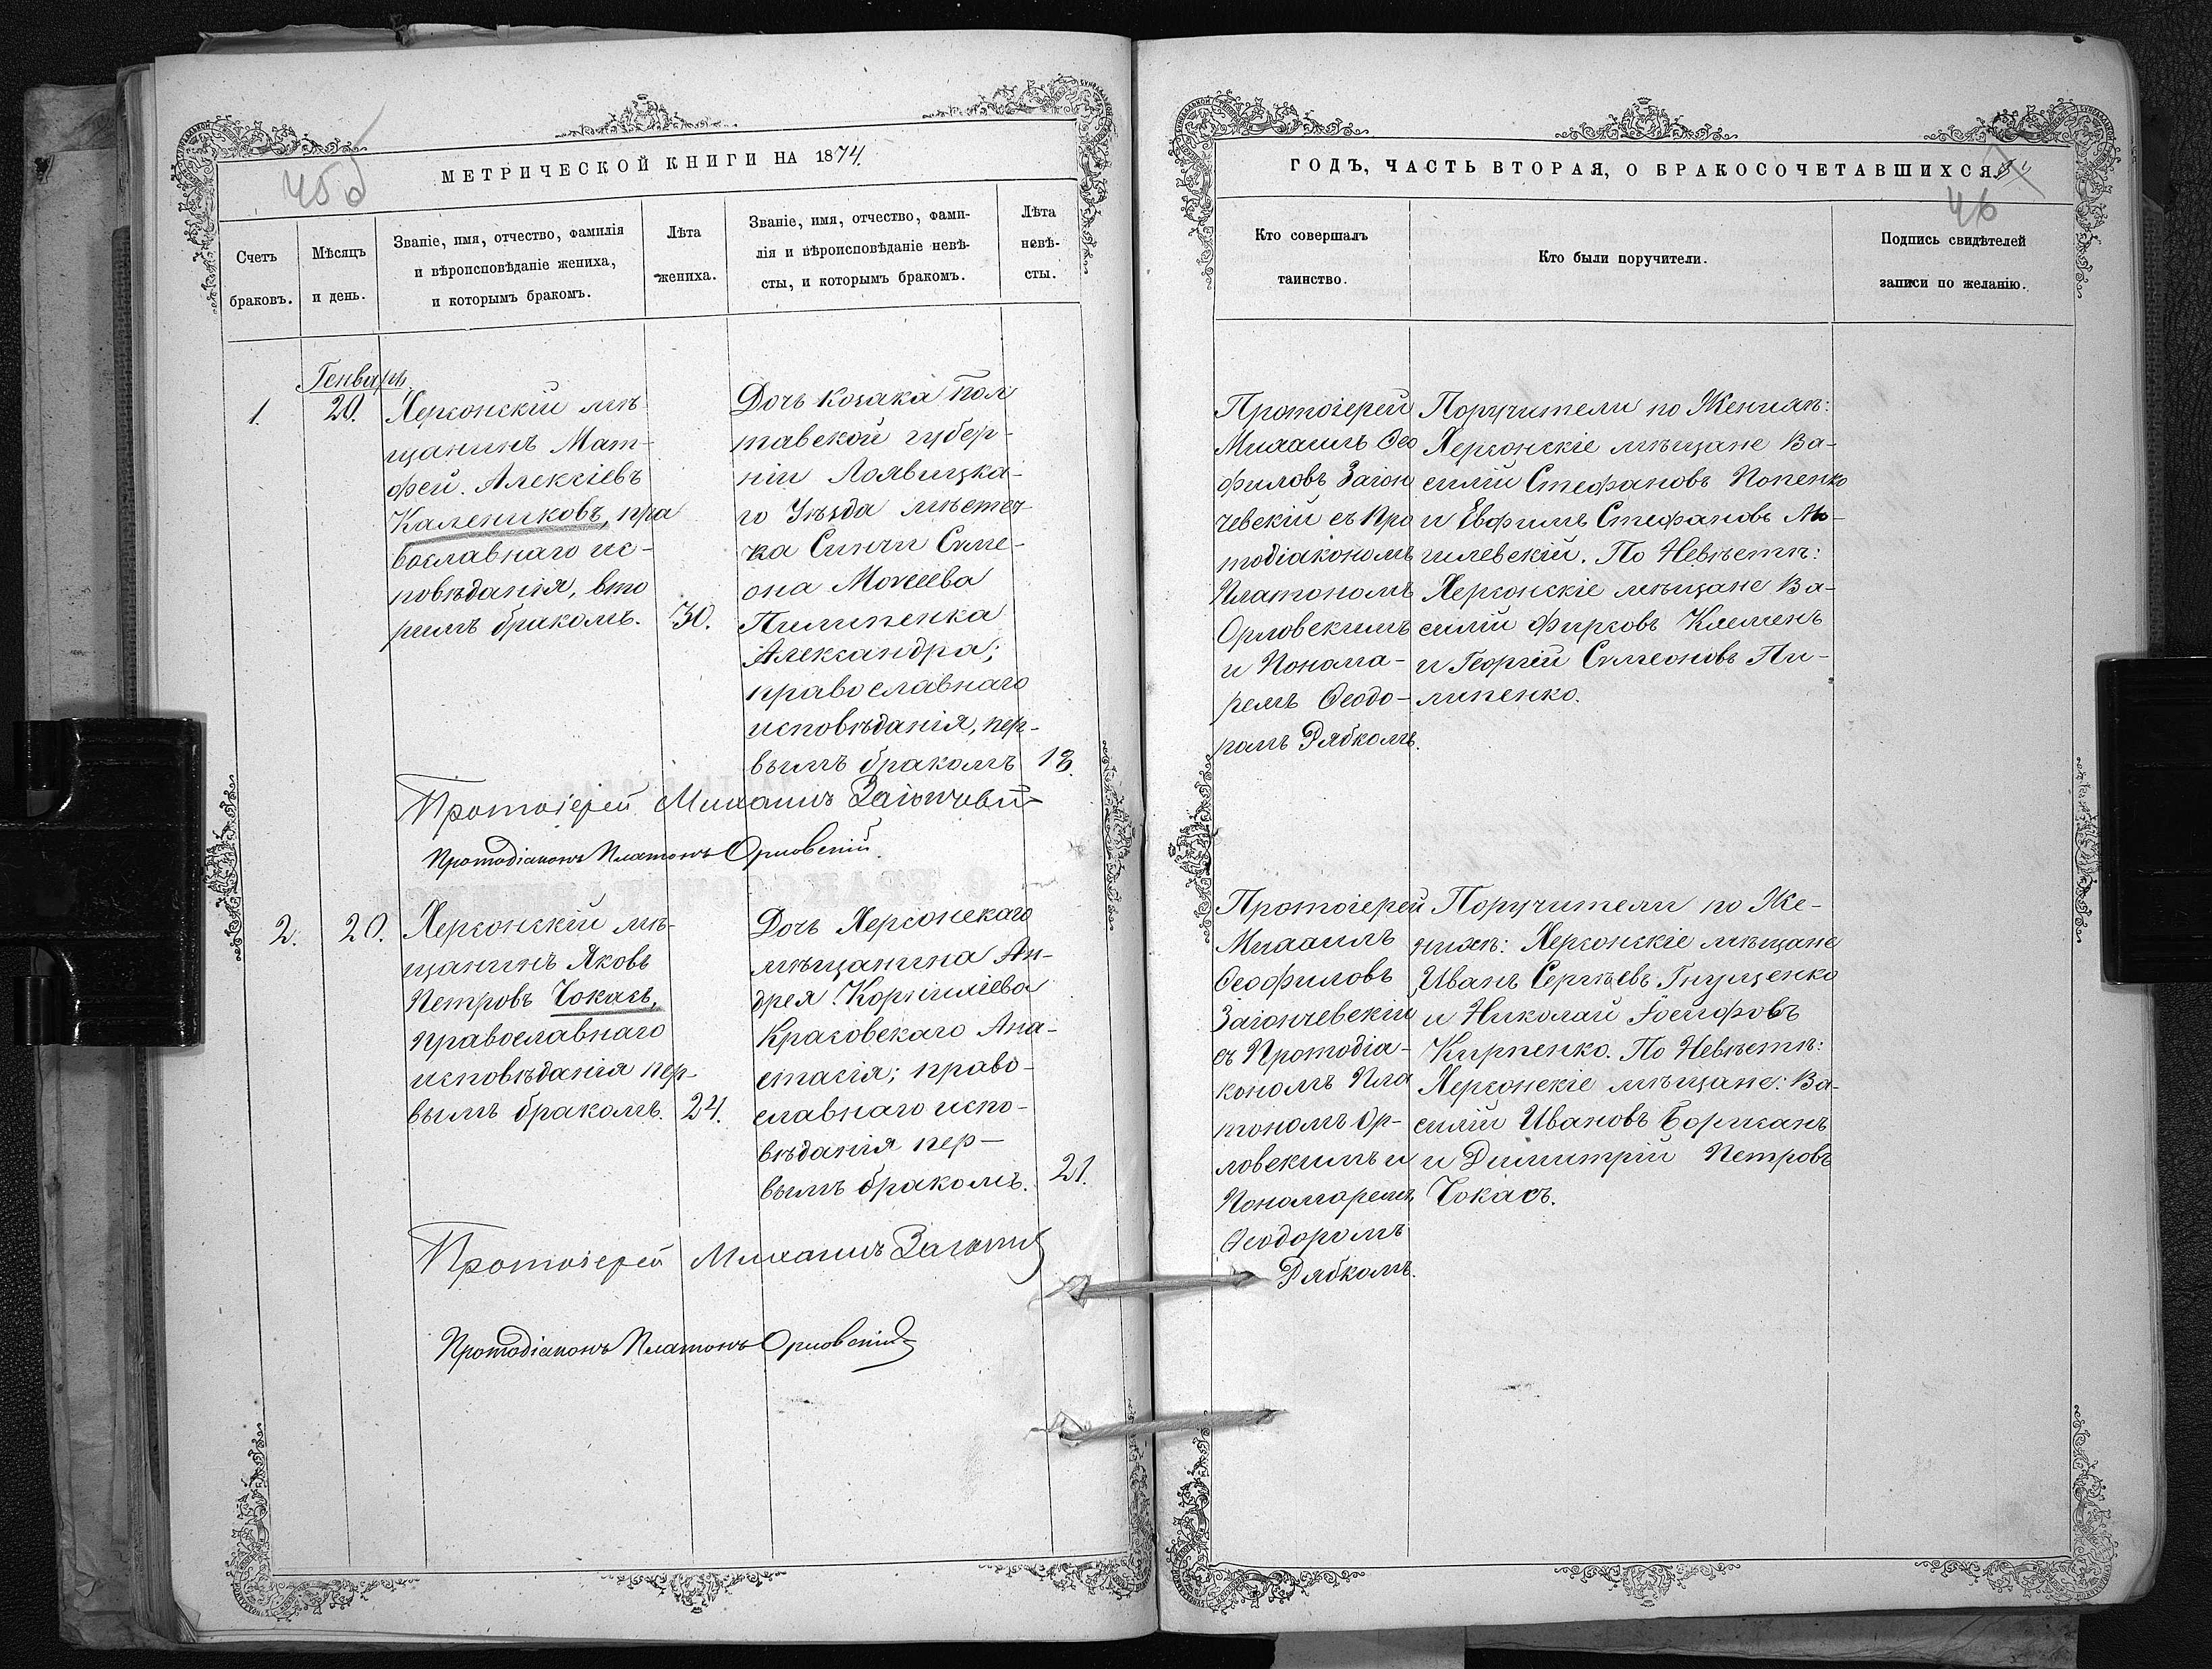 45об
МЕТРИЧЕСКОЙ КНИГИ НА 1874
Счетъ
браковъ.
Мѣсяцъ
и день.
Званіе, имя, отчество, фамилія
и вѣроисповѣданіе жениха,
и которымъ бракомъ.
Лѣта
жениха.
Званіе, имя, отчество, фами-
лія и вѣроисповѣданіе невѣ-
сты, и которымъ бракомъ.
Лѣта
невѣ-
сты.
Генварь
1.
20.
Херсонскій мѣ
щанинъ Мат-
фей Алексіевъ
Калениковъ, пра
вославнаго ис-
повѣданія, вто
рымъ бракомъ.
30.
Дочь козака Пол
тавской губер-
ніи Лохвицка-
го Уѣзда мѣстеч-
ка Синчи Симе-
она Моѵсеева
Пилипенка
Александра;
православнаго
исповѣданія, пер-
вымъ бракомъ
18.
Протоіерей Михаилъ
Протодіаконъ Платонъ Орловскій
2.
20.
Херсонскій мѣ-
щанинъ Яковъ
Петровъ Чокасъ,
православнаго
исповѣданія пер-
вымъ бракомъ.
24.
Дочь Херсонскаго
мѣщанина Ан-
дрея Корниліева
Красовскаго Ана-
стасія; право-
славнаго испо-
вѣданія пер-
вымъ бракомъ.
21.
Протоіерей Михаилъ
Протодіаконъ Платонъ Орловскій
ГОДЪ, ЧАСТЬ ВТОРАЯ, О БРАКОСОЧЕТАВШИХСЯ.
46
Кто совершалъ
таинство.
Кто были поручители.
Подпись свидѣтелей
записи по желанію.
Протоіерей
Михаилъ Ѳео
филовъ Загон
чевскій съ Про
тодіакономъ
Платономъ
Орловскимъ
и Понома-
ремъ Ѳеодо-
ромъ Рябкомъ.
Поручители по Женихѣ:
Херсонскіе мѣщане Ва-
силій Стефановъ Попенко
и Евфимъ Стефановъ Мо-
гилевскій. По Невѣстѣ:
Херсонскіе мѣщане Ва-
силій Фирсовъ Клемень
и Георгій Симеоновъ Пи-
липенко.
Протоіерей
Михаилъ
Ѳеофиловъ
Загончевскій
съ Протодіа-
кономъ Пла
тономъ Ор-
ловскимъ и
Пономоремъ
Ѳеодоромъ
Рябкомъ.
Поручители по Же-
нихѣ: Херсонскіе мѣщане
Иванъ Сергѣевъ Гнущенко
и Николай Іосифовъ
Кирпенко. По Невѣстѣ:
Херсонскіе мѣщане: Ва-
силій Ивановъ Боржанъ
и Димитрій Петровъ
Чокасъ.